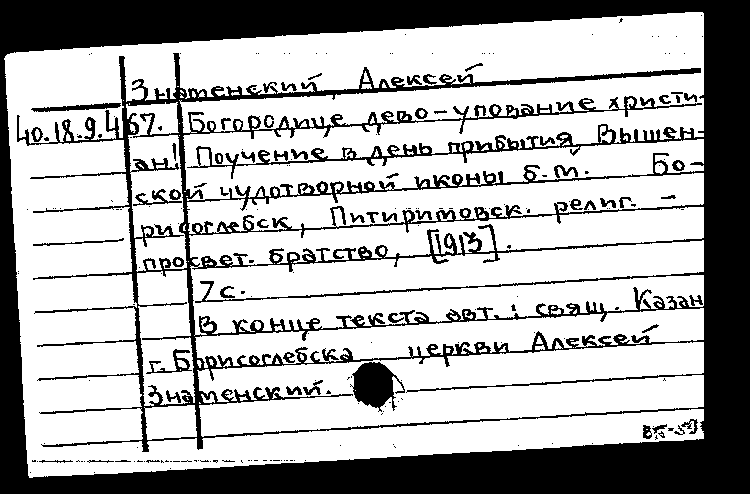 Знаменский, Алексей
40.18.9.467. Богородице дево-упование христи-
ан! Поучение в день прибытия Вышен-
ской чудотворной иконы б.м. Бо-
рисоглебск, Питиримовск. религ. -
просвет. братство, [1913].
7с.
В конце текста авт.: свящ. Казан
г. Борисоглебска церкви Алексей
Знаменский.